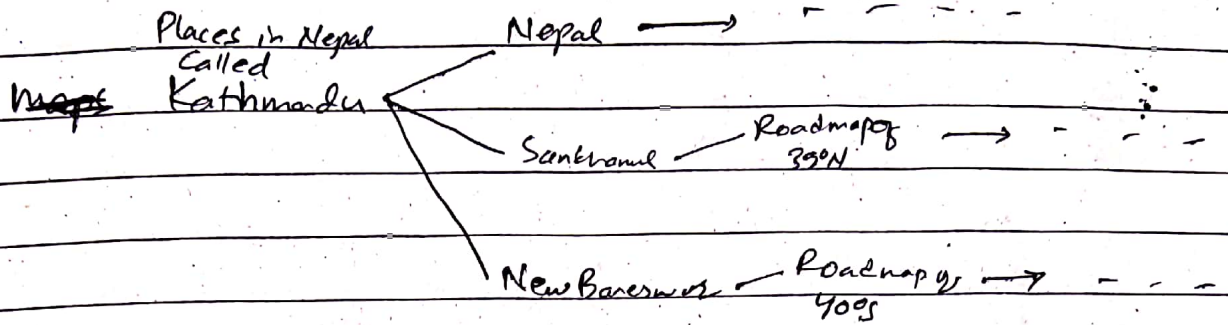 Places in Nepal
Called
Kathmandu
Nepal → - - - -
Sankhamul
Roadmap of
39°N
→ - - -
New Baneswor
Roadmap of
40°S
→ - - -